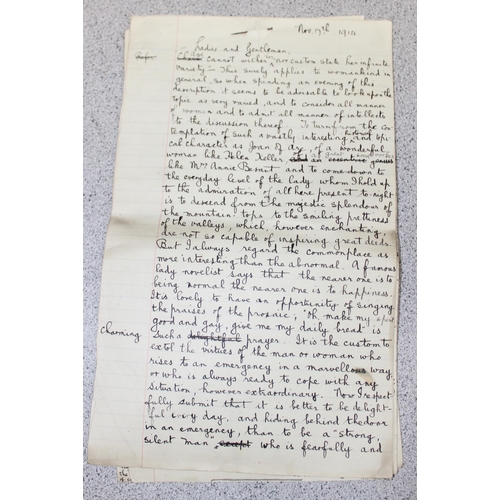 Nov. 17th 1914
Ladies and Gentlemen.
Age cannot wither nor custom stale her infinite
variety — This surely applies to womankind in
general, so when spending an evening of this
description it seems to be advisable to look upon the
topic as very varied, and to consider all manner
of women and to admit all manner of intellects
to the discussion thereof. To turn from the con-
templation of such a vastly interesting historical and topi
cal character as Joan of Arc, of a wonderful
woman like Helen Keller, of a great
like Mrs Annie Besant and to come down to
the everyday level of the lady whom I hold up
to the admiration of all here present to-night
is to descend from the majestic splendour of
the mountain tops to the smiling prettiness
of the valleys, which, however enchanting,
are not so capable of inspiring great deeds.
But I always regard the commonplace as
more interesting than the abnormal. A famous
lady novelist says that the nearer one is to
being normal the nearer one is to happiness.
It is lovely to have an opportunity of singing
the praises of the prosaic; "Oh make my
good and gay, give me my daily bread" is
Charming
such a delightful prayer. It is the custom to
extol the virtues of the man or woman who
rises to an emergency in a marvellous way
or who is always ready to cope with any
situation, however extraordinary. Now I respect
fully submit that it is better to be delight-
ful every day, and hiding behind the door
in an emergency, than to be a "strong,
silent man except who is fearfully and